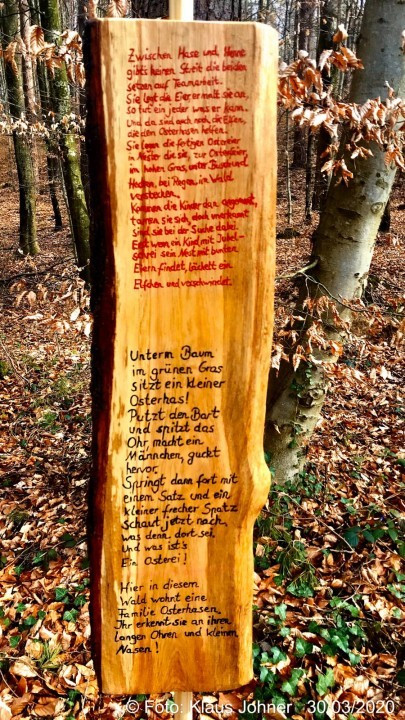 Zwischen Hase und Henne
gibts keinen Streit die beiden
setzen auf Teamarbeit.
Sie legt die Eier er malt sie an,
so tut ein jeder was er kann.
Und da sind auch noch die Elfen,
die dem Osterhasen helfen.
Sie legen die fertigen Ostereier
in Nester die sie, zur Osterfeier
im hohen Gras, unter Busch und
Hecken, bei Regen, im Wald
verstecken.
Kommen die Kinder dann angerannt,
tarnen sie sich doch unerkannt
sind sie bei der Suche dabei.
Erst wenn ein Kind mit Jubel-
schrei sein Nest mit bunten
Eiern findet, lächelt ein
Elfchen und verschwindet.
Unterm Baum
im grünen Gras
sitzt ein kleiner
Osterhas!
Putzt den Bart
und spitzt das
Ohr, macht ein
Männchen, guckt
hervor.
Springt dann fort mit
einem Satz und ein
kleiner frecher Spatz
Schaut jetzt nach,
was denn dort sei.
Und was ist's
Ein Osterei!
Hier in diesem
Wald wohnt eine
Familie Osterhasen,
Ihr erkennt sie an ihren
langen Ohren und kleinen
Nasen!
© Foto: Klaus Johner 30/03/2020